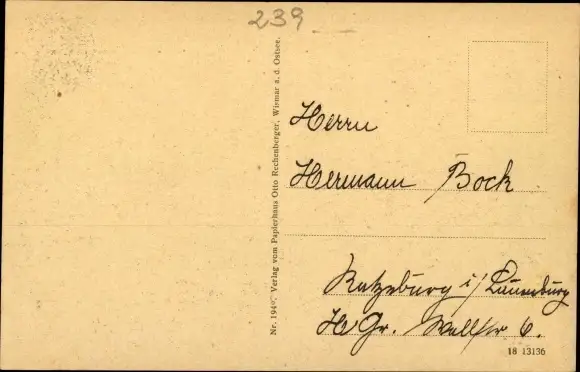 239
Nr. 194 Verlag vom Papierhaus Otto Rechenberger, Wismar a. d. Ostsee.
Herrn
Hermann Bock
Ratzeburg i/Lauenburg
Gr. Wallstr 6.
18 13136